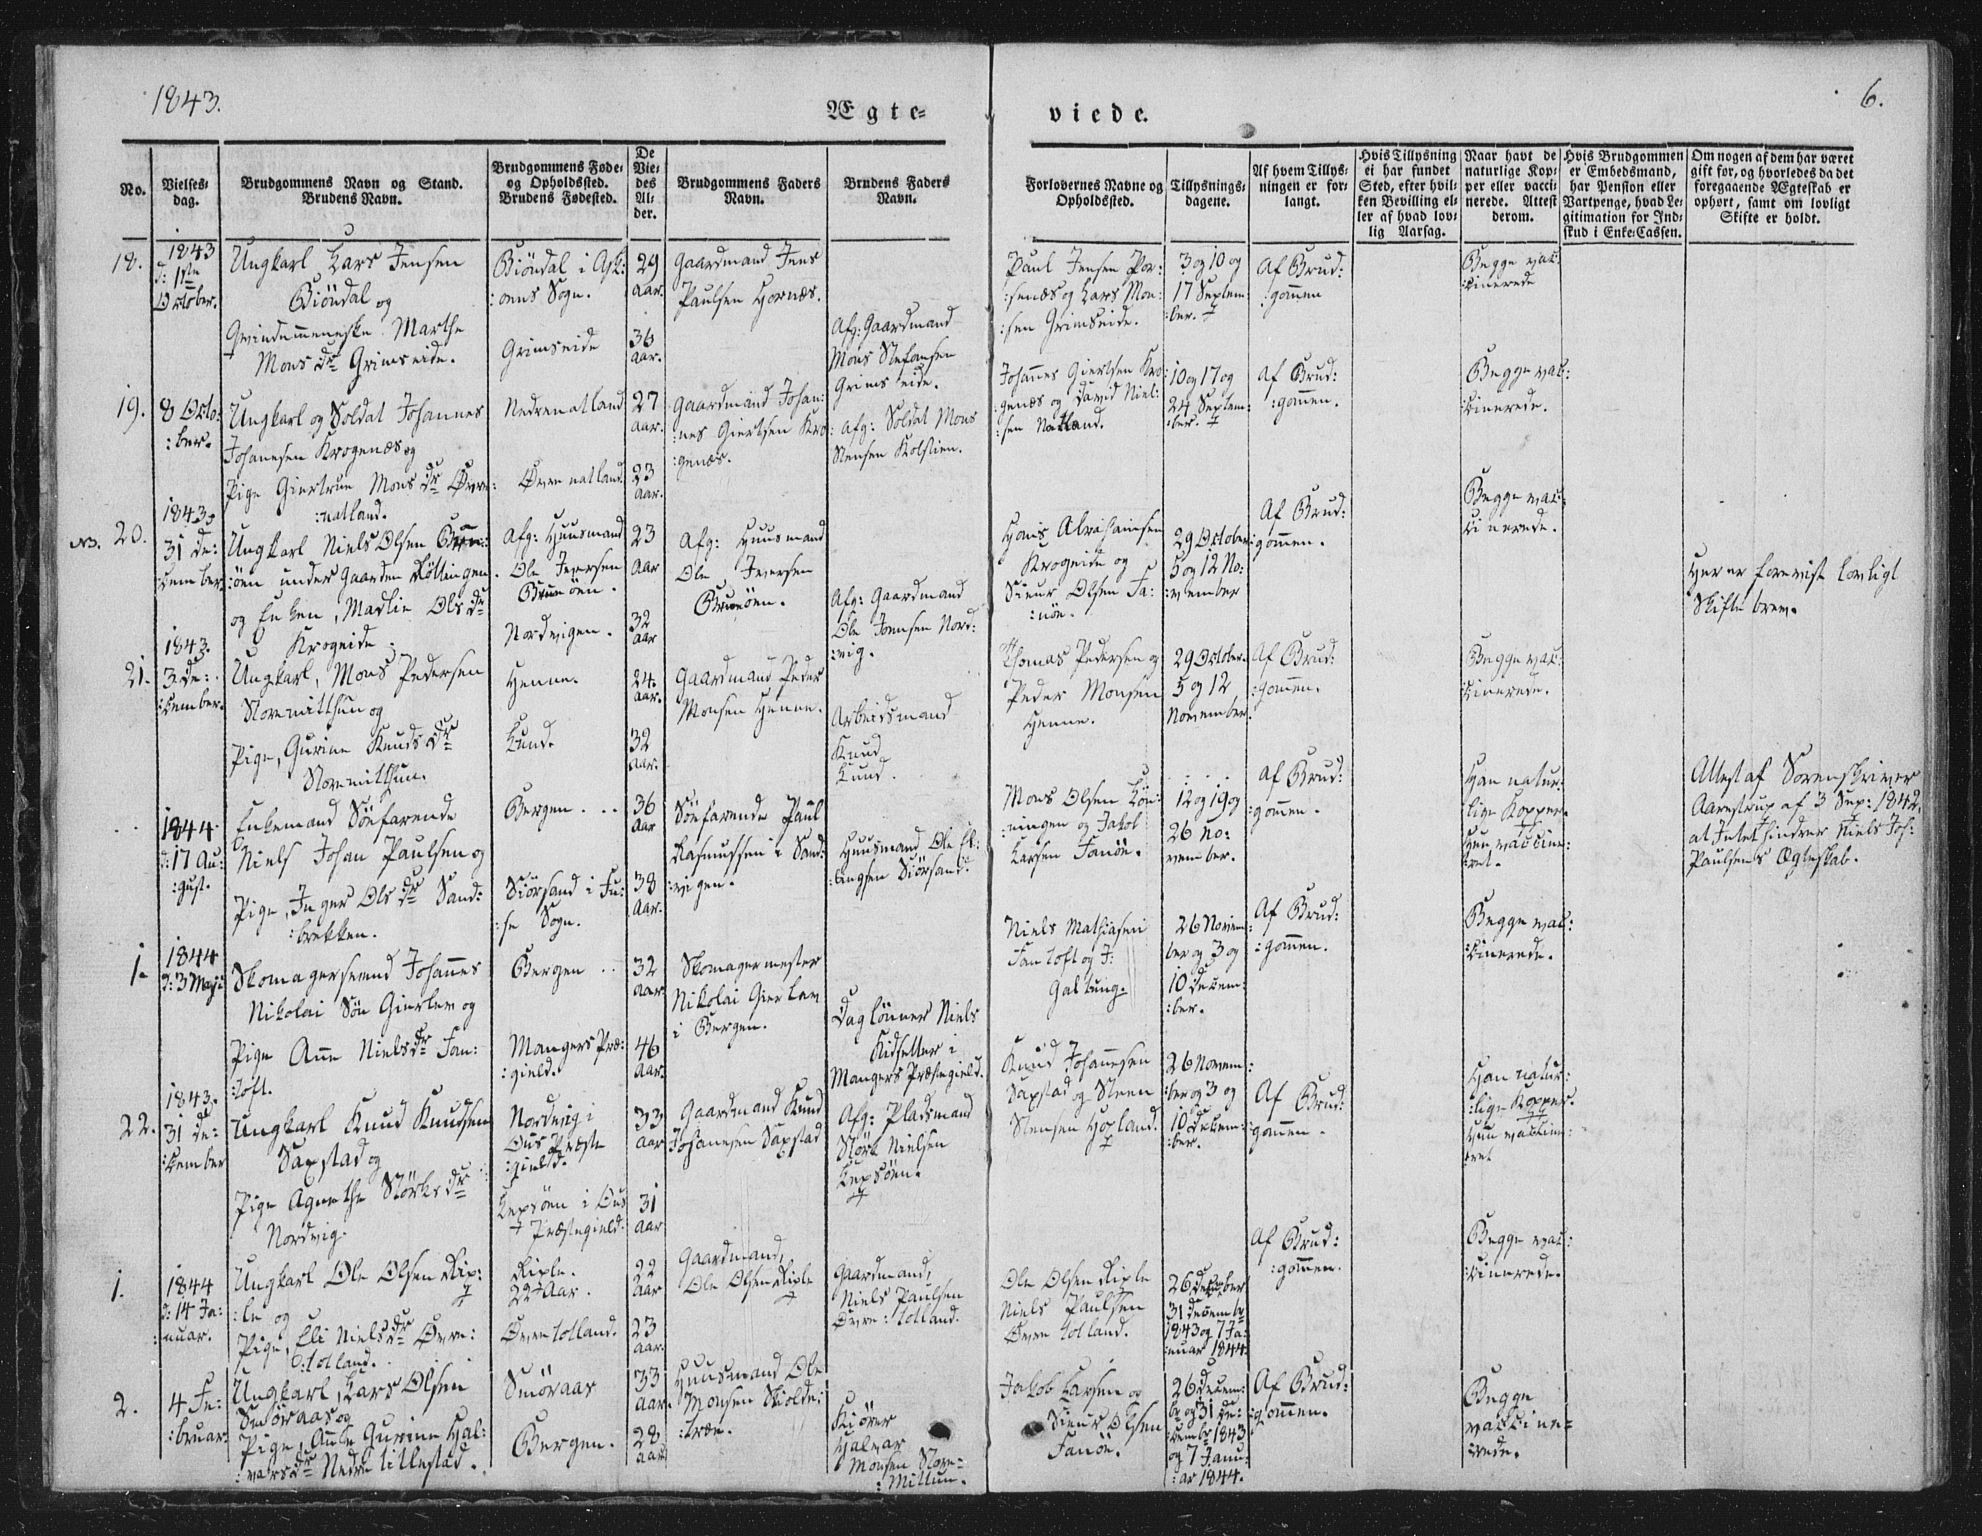 1843.
Ægte-
viede.
6.
No.
Vielses-
dag.
Brudgommens Navn og Stand.
Brudens Navn.
Brudgommens Føde-
og Opholdssted.
Brudens Fødested.
De
Vie-
des
Al-
der.
Brudgommens Faders
Navn.
Brudens Faders
Navn.
Forlovernes Navne og
Opholdssted.
Tillysnings-
dagene.
Af hvem Tillys-
ningen er for-
langt.
Hvis Tillysning
ei har fundet
Sted, efter hvil-
ken Bevilling el-
ler af hvad lov-
lig Aarsag.
Naar havt de
naturlige Kop-
per eller vacci-
nerede. Attest
derom.
Hvis Brudgommen
er Embedsmand,
har Pension eller
Vartpenge, hvad Le-
gitimation for Ind-
skud i Enke-Cassen.
Om nogen af dem har været
gift før, og hvorledes da det
foregaaende Ægteskab er
ophørt, samt om lovligt
Skifte er holdt.
18.
1843
d: 1ste
October.
Ungkarl Lars Jensen
Biöndal og
Qvindemenneske Marthe
Mons dr Grimseide.
Biöndal i Ask:
:oens Sogn.
Grimseide
29
aar.
36
aar.
Gaardmand Jens
Paulsen Hornæs.
Afg: Gaardmand
Mons Stefansen
Grimseide.
Paul Jensen Hor:
:senæs og Lars Mon:
:sen Grimseide.
3 og 10 og
17 Septem:
:ber.
Af Brud:
:gommen
Begge vac:
:cinerede
19.
8 Octo:
:ber.
Ungkarl og Soldat Johannes
Johannesen Krogenæs og
Pige Giertrue Mons dr Øvre:
:natland.
Nedrenatland
Øvrenatland.
27
aar.
23
aar.
Gaardmand Johan:
:nes Giertsen Kro:
:genæs.
Afg: Soldat Mons
Stensen Kolstien.
Johannes Giertsen Kro:
:genæs og David Niel:
:sen Natland.
10 og 17 og
24 Septem:
:ber.
Af Brud:
:gommen.
Begge vac:
:cinerede.
NB. 20.
1843.
31 De:
:cember
Ungkarl Niels Olsen Brun:
:öen under Gaarden Röttingen
og Enken, Madlie Ols dr
Krogeide.
Afg: Huusmand
Ole Iversen
Brunöen.
Nordvigen.
23
aar
32
aar
Afg: Huusmand
Ole Iversen
Brunöen.
Afg: Gaardmand
Ole Joensen Nord:
:vig.
Hans Abrahamsen
Krogeide og
Sieur Olsen Fa:
:nöe.
29 October
5 og 12 No:
:vember
Af Brud:
gommen.
Begge vac:
cinerede.
Her er forevist lovligt
Skiftebrev.
21.
1843.
3 De:
:cember.
Ungkarl, Mons Pedersen
Storemitthun og
Pige, Gurine Knuds dr
Storemitthun.
Henne.
Lund.
24.
aar.
32
aar.
Gaardmand Peder
Monsen Henne.
Arbeidsmand
Knud
Lund.
Thomas Pedersen og
Peder Monsen
Henne.
29 October.
5 og 12
November.
Af Brud:
:gommen.
Begge vac:
:cinerede.
1844.
d: 17 Au:
:gust.
Enkemand Söefarende
Niels Johan Paulsen og
Pige, Inger Ols dr Sand:
:brekken.
Bergen...
Siörsand i Fu:
:se Sogn.
36
aar
38
aar.
Söefarende Paul
Rasmussen i Sand:
:vigen.
Huusmand Ole El:
:lingsen Siörsand.
Mons Olsen Lön:
:ningen og Jakob
Larsen Fanöe.
12 og 19 og
26 No:
vember.
Af Brud:
gommen.
Han natur:
lige Kopper.
Hun vaccine:
ret.
Attest af Sorenskriver
Aarestrup af 3 Sep: 1842,
at Intet hindrer Niels Joh:
Paulsens Ægteskab.
1.
1844
d: 3 Maji
Skomagersvend Johannes
Nikolai Sön Gierlew og
Pige Anne Niels dr Fan:
:toft.
Bergen..
Mangers Præ:
:gield.
32
aar
46
aar.
Skomagermester
Nikolai Gierlew
i Bergen.
Daglönner Niels
Kidsetter i
Mangers Præstegield.
Niels Mathiasen
Fantoft og J.
Galtung.
26 Novem:
ber og 3 og
10 Decem:
:ber.
Af Brud:
:gommen.
Begge vac:
:cinerede.
22.
1843.
31 De:
:cember
Ungkarl Knud Knudsen
Saxstad og
Pige Agnethe Störks dr
Nordvig.
Nordvig i
Ous Præste
:gield.
Lepsöen i Ous
Præstegield.
33
aar
31
aar
Gaardmand Knud
Johannesen Saxstad
Afg: Pladsmand
Störk Nielsen
Lepsöen.
Knud Johannesen
Saxstad og Steen
Stensen Hopland.
26 Novem:
:ber og 3 og
10 Decem:
:ber.
Af Brud:
gommen.
Han natur:
:lige Kopper.
Hun vaccine:
:ret
1.
1844
d: 14 Ja:
:nuar.
Ungkarl Ole Olsen Rip:
:le og
Pige, Eli Niels dr Øvre:
:totland.
Riple.
22 Aar.
Øvretotland.
22
aar
23
aar.
Gaardmand,
Ole Olsen Riple
Gaardmand,
Niels Paulsen
Øvre:totland.
Ole Olsen Riple
Niels Paulsen
Øvretotland.
26 December
31 Decembr
1843 og 7 Ja:
:nuar 1844.
Af Brud:
:gommen.
Begge vac:
:cinerede.
2.
4 Fe:
:bruar.
Ungkarl, Lars Olsen
Smöraas og
Pige, Anne Gurine Hal:
:vors dr Nedre tillestad.
Smöraas
Bergen.
33
aar.
28
aar
Huusmand Ole
Monsen Skolde:
:træe.
Kiörer
Halvor
Monsen Store:
:Mittun.
Jakob Larsen og
Sieur Olsen
Fanöe.
26 Decem:
br og 31 De:
:cembr 1843
og 7 Janu:
:ar 1844.
Af Brud:
gommen.
Begge
vaccine=
rede.